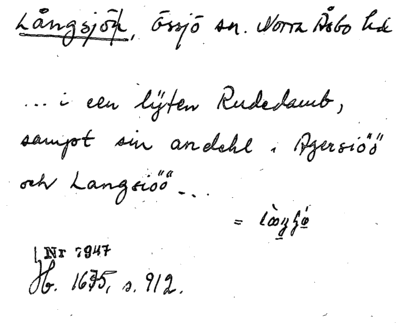 Långsjön, Össjö sn. Norra Åsbo hd
... i een lijten Rudedamb,
sampt sin andehl i Agersiöö
och Langsiöö ...
=
Nr 7947
Jb. 1675, s. 912.